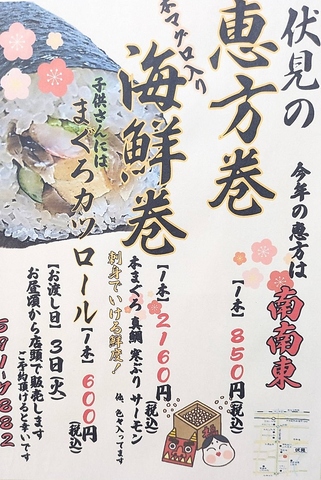 伏見の
恵方巻
今年の恵方は
南南東
【1本】850円(税込)
本マグロ入り
海鮮巻
【1本】2160円(税込)
本まぐろ 真鯛 寒ぶり サーモン
他、色々入ってます
刺身でいける鮮度!
子供さんには
まぐろカツロール
【1本】600円(税込)
【お渡し日】3日(火)
お昼頃から店頭で販売します
ご予約頂けると幸いです